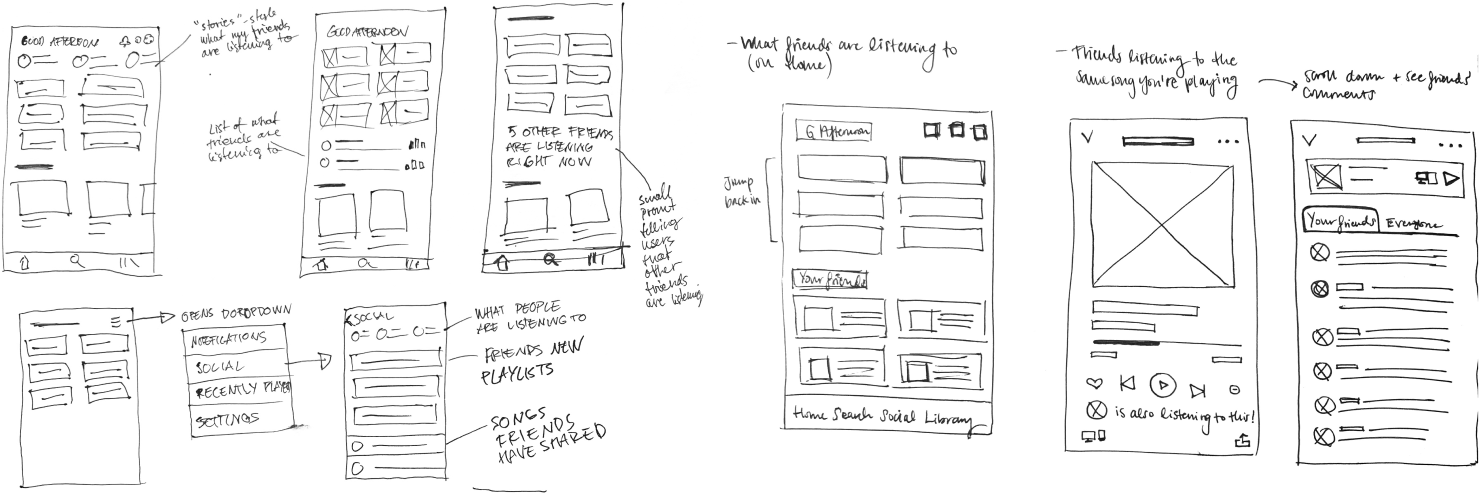 "stories"-style
what my friends
are listening to
GOOD AFTEROON
List of what
friends are
listening to
GOOD AFTERNOON
5 OTHER FRIENDS
ARE LISTENING
RIGHT NOW
small
promt
telling
users
that
other
friends
are listening.
OPENS DORDPDOWN
NOTIFICATIONS
SOCIAL
RECENTLY PLAYED
SETTINGS
<SOCIAL
WHAT PEOPLE
ARE LISTENING TO
FRIENDS NEW
PLAYLISTS
SONGS
FRIENDS
HAVE SHARED
- What friends are listening to
(on home)
G Afternoon
Jump
back in
Your friends
Home Search Social Library
- Friends listening to the
same song you're playing
is also listening to this!
scroll down + see friends'
comments
Your friends Everyone